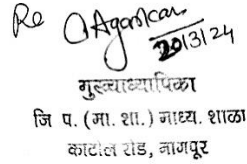 Re
20/3/24
मुख्याध्यापिका
जि प. (मा. शा.) माध्य. शाळा
काटोल रोड, नागपूर